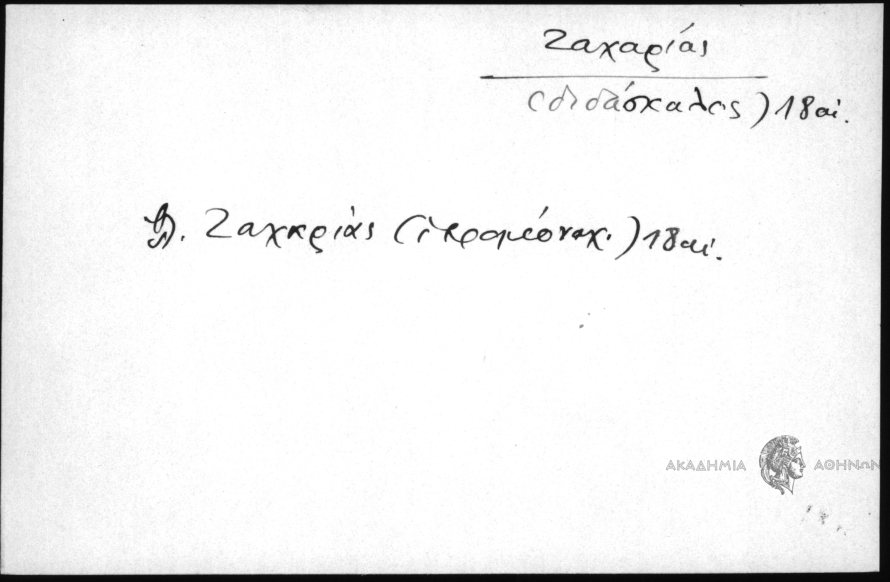 Ζαχαρίας
(διδάσκαλος) 18 αἰ.
Ζαχαρίας (ἱερομόναχ.) 18 αἰ.
ΑΚΑΔΗΜΙΑ ΑΘΗΝΩΝ